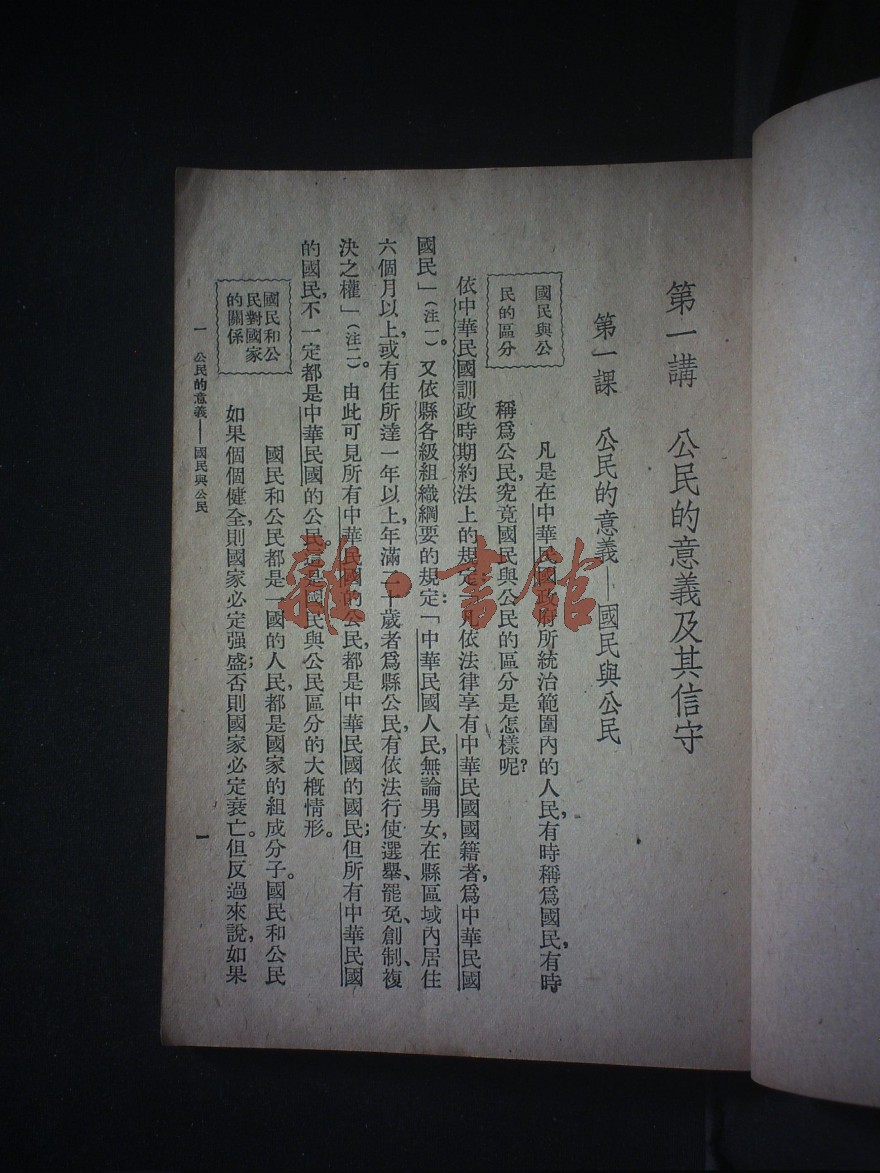 第一講　公民的意義及其信守
第一課　公民的意義——國民與公民
國民與公
民的區分
凡是在中華民國政府所統治範圍內的人民，有時稱爲國民，有時
稱爲公民，究竟國民與公民的區分是怎樣呢？
依中華民國訓政時期約法上的規定：「凡依法律享有中華民國國籍者，爲中華民國
國民」（注一）。又依縣各級組織綱要的規定：「中華民國人民，無論男女，在縣區域內居住
六個月以上，或有住所達一年以上，年滿二十歲者爲縣公民，有依法行使選舉、罷免、創制、複
決之權」（注二）。由此可見所有中華民國的公民，都是中華民國的國民；但所有中華民國
的國民，不一定都是中華民國的公民。這是國民與公民區分的大概情形。
國民和公
民對國家
的關係
國民和公民都是一國的人民，都是國家的組成分子。國民和公民
如果個個健全，則國家必定强盛；否則國家必定衰亡。但反過來說，如果
一　公民的意義——國民與公民
一
雜·書館